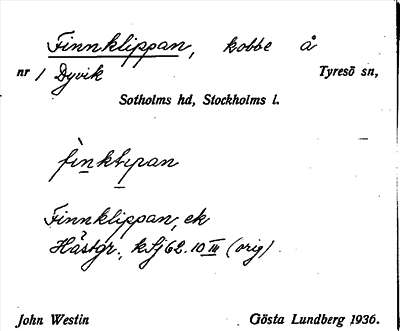 Finnklippan, kobbe å
nr 1 Dyvik Tyresö sn,
Sotholms hd, Stockholms l.
fìnkłıpan
Finnklippan, ek
Hästgr., kSj 62. 10 III (orig).
John Westin Gösta Lundberg 1936.